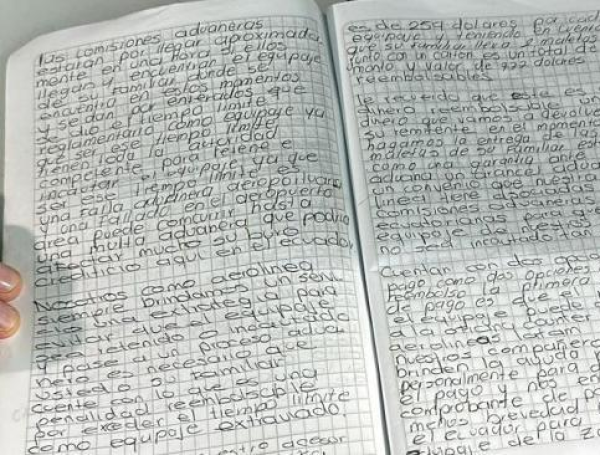 las comisiones aduaneras
estaran por llegar aproximada
mente en una hora si ellos
llegan y encuentran el equipaje
de su familiar donde se
encuentra en estos momentos
y se dan por enterados que
se dio el tiempo limite
reglamentario como equipaje ya
que ser ese tiempo limite
tienen toda la autoridad
competente para retene e
incautar el equipaje ya que
ser ese tiempo limite es
una falla aduanera aeroportuaria
y una fallado en el aeropuerto
area puede concurrir hasta
una multa aduanera que podria
afectar mucho su buro
crediticio aqui en el ecuador
Nosotros como aerolinea
siempre brindamos un servi
cio una extrategia para
evitar que el equipaje
sea retenido o incautado
y pase a un proceso adua
nero es necesario que
usted o su familiar
cuente con lo que es una
penalidad reembolsable
por exceder el tiempo limite
como equipaje extraviado.
es de 259 dolares por cad
equipaje y teniendo en cuenta
que su familiar lleva 2 male
junto con un carton es un total de
monto y valor de 777 dolares
reembolsables
le recuerdo que este es un
dinero reembolsable un
dinero que vamos a devolve
su remitente en el momento
hagamos la entrega de las
maletas de su familiar est
como una garantia ante
aduana un arancel adua
un convenio que nuestra
linea tiene
comisiones aduaneras
ecuatorianas para que
equipaje de nuest
no sea incautado tan
Cuentan con dos opcio
pago como dos opciones
reembolso la primera
de pago es que el
el equipaje puede
a la counter
aerolineas latam
nuestros compañero
brinden la ayuda p
personalmente para
el pago y nos en
comprobante de p
menos brevedad p
el ecuador para
equipaje de la zo